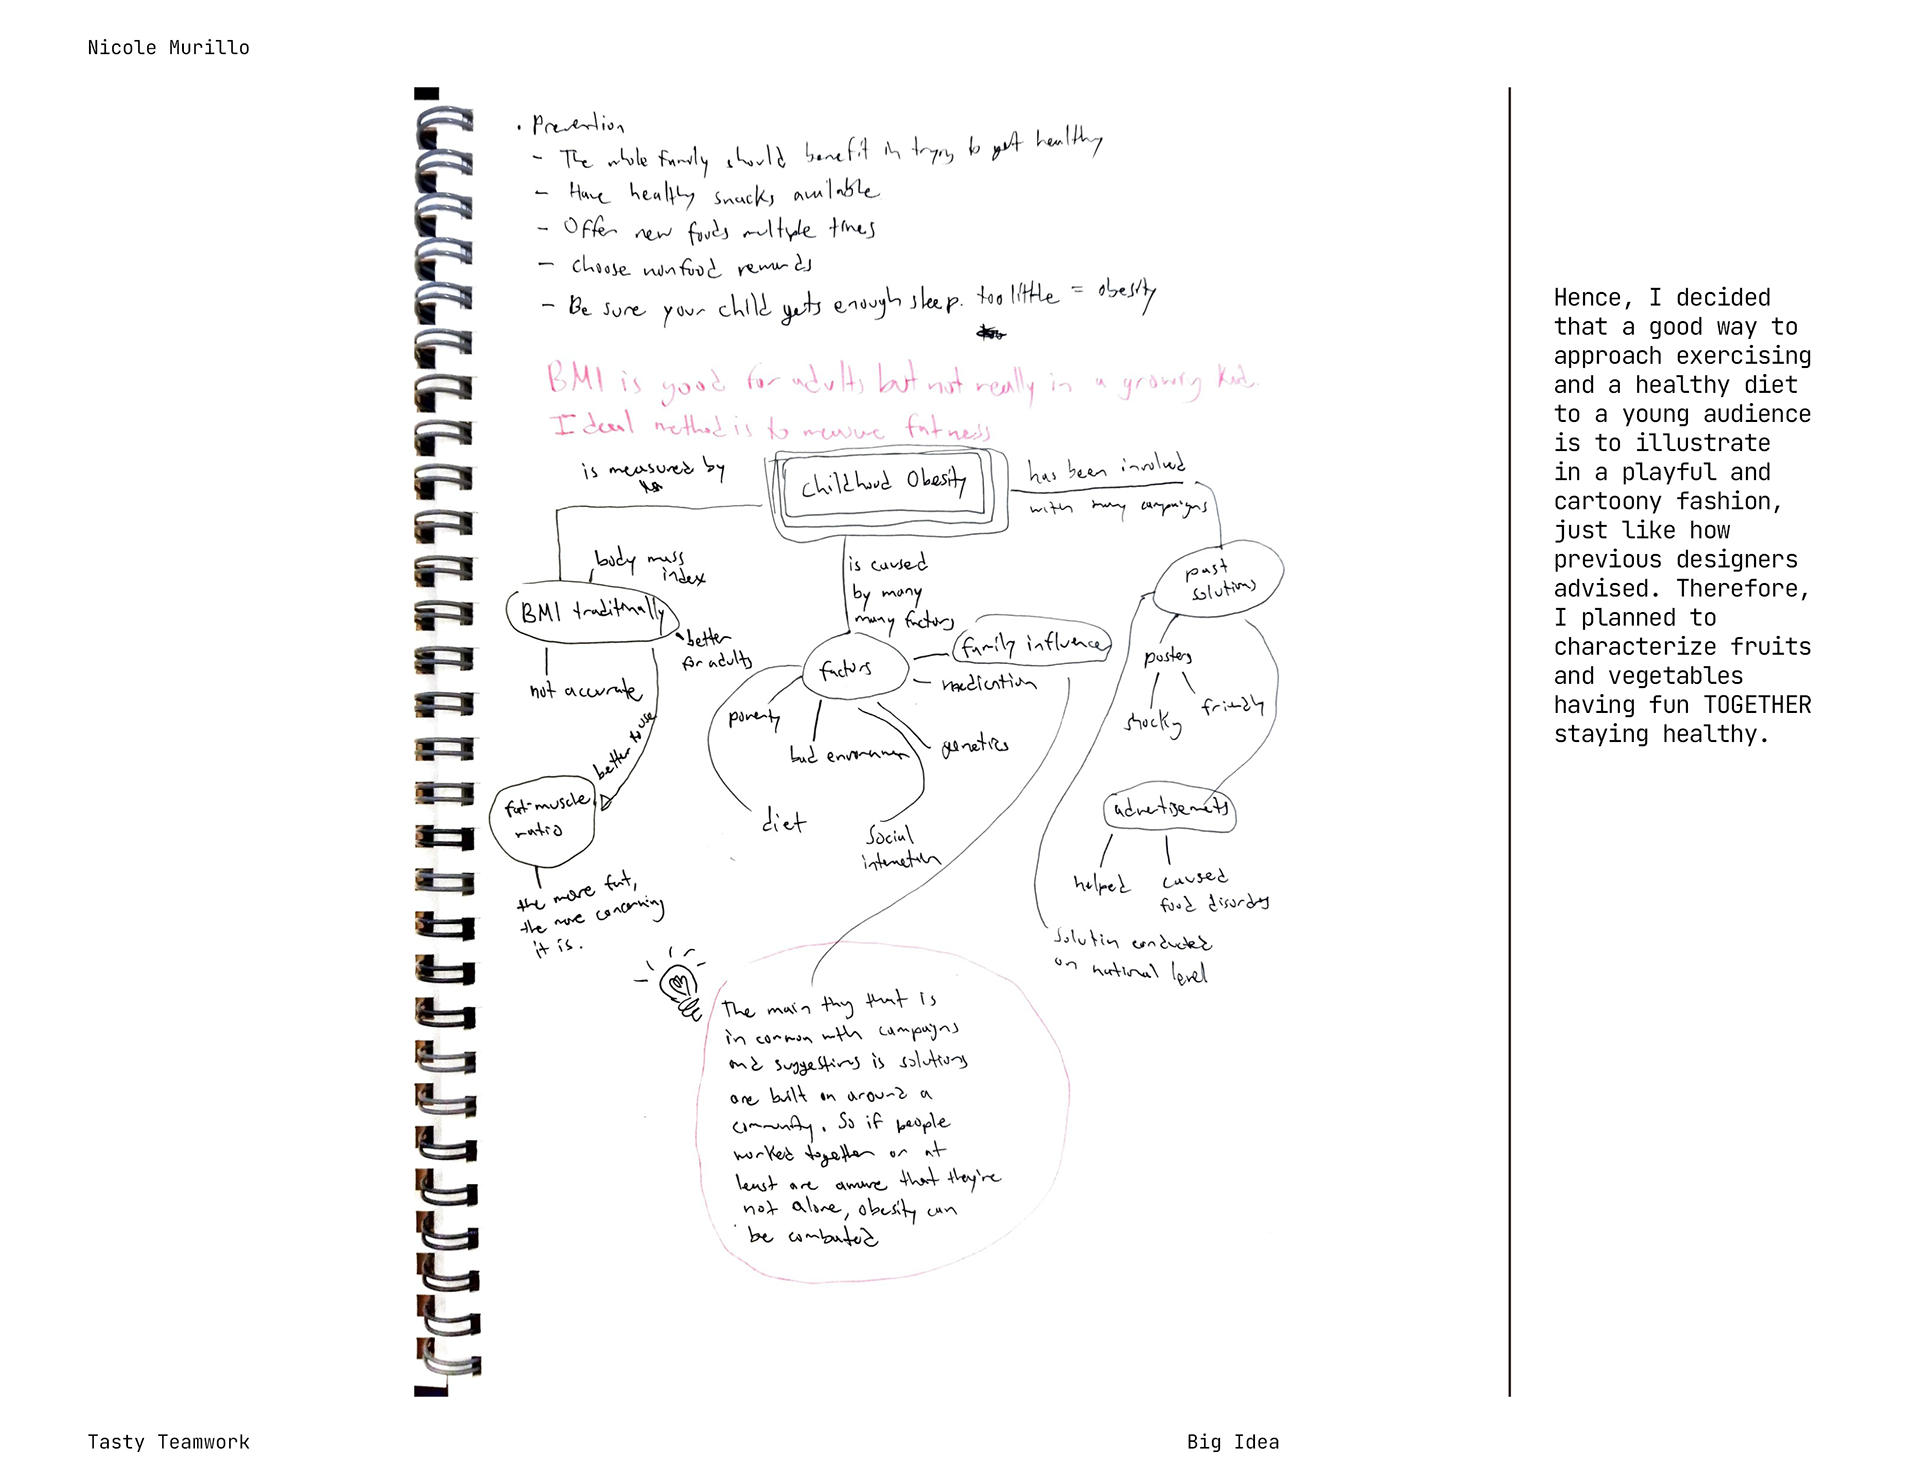 Nicole Murillo
• Prevention
- The whole family should benefit in trying to get healthy
- Have healthy snacks available
- Offer new foods multiple times
- Choose nonfood rewards
- Be sure your child gets enough sleep. too little = obesity
BMI is good for adults but not really in a growing kid.
Ideal method is to measure fatness
is measured by
Childhood Obesity
has been involved
with many campaigns
body mass
index
BMI traditionally
better
for adults
not accurate
better to use
fat-muscle
ratio
the more fat,
the more concerning
it is.
is caused
by many
many factors
factors
family influence
medication
poverty
bad environment
genetics
diet
social
interaction
past
solutions
posters
shocky
friendly
advertisements
helped
caused
food disorders
solution conducted
on national level
The main thing that is
in common with campaigns
and suggestions is solutions
are built on around a
community. So if people
worked together or at
least are aware that they're
not alone, obesity can
be combated
Hence, I decided
that a good way to
approach exercising
and a healthy diet
to a young audience
is to illustrate
in a playful and
cartoony fashion,
just like how
previous designers
advised. Therefore,
I planned to
characterize fruits
and vegetables
having fun TOGETHER
staying healthy.
Tasty Teamwork
Big Idea